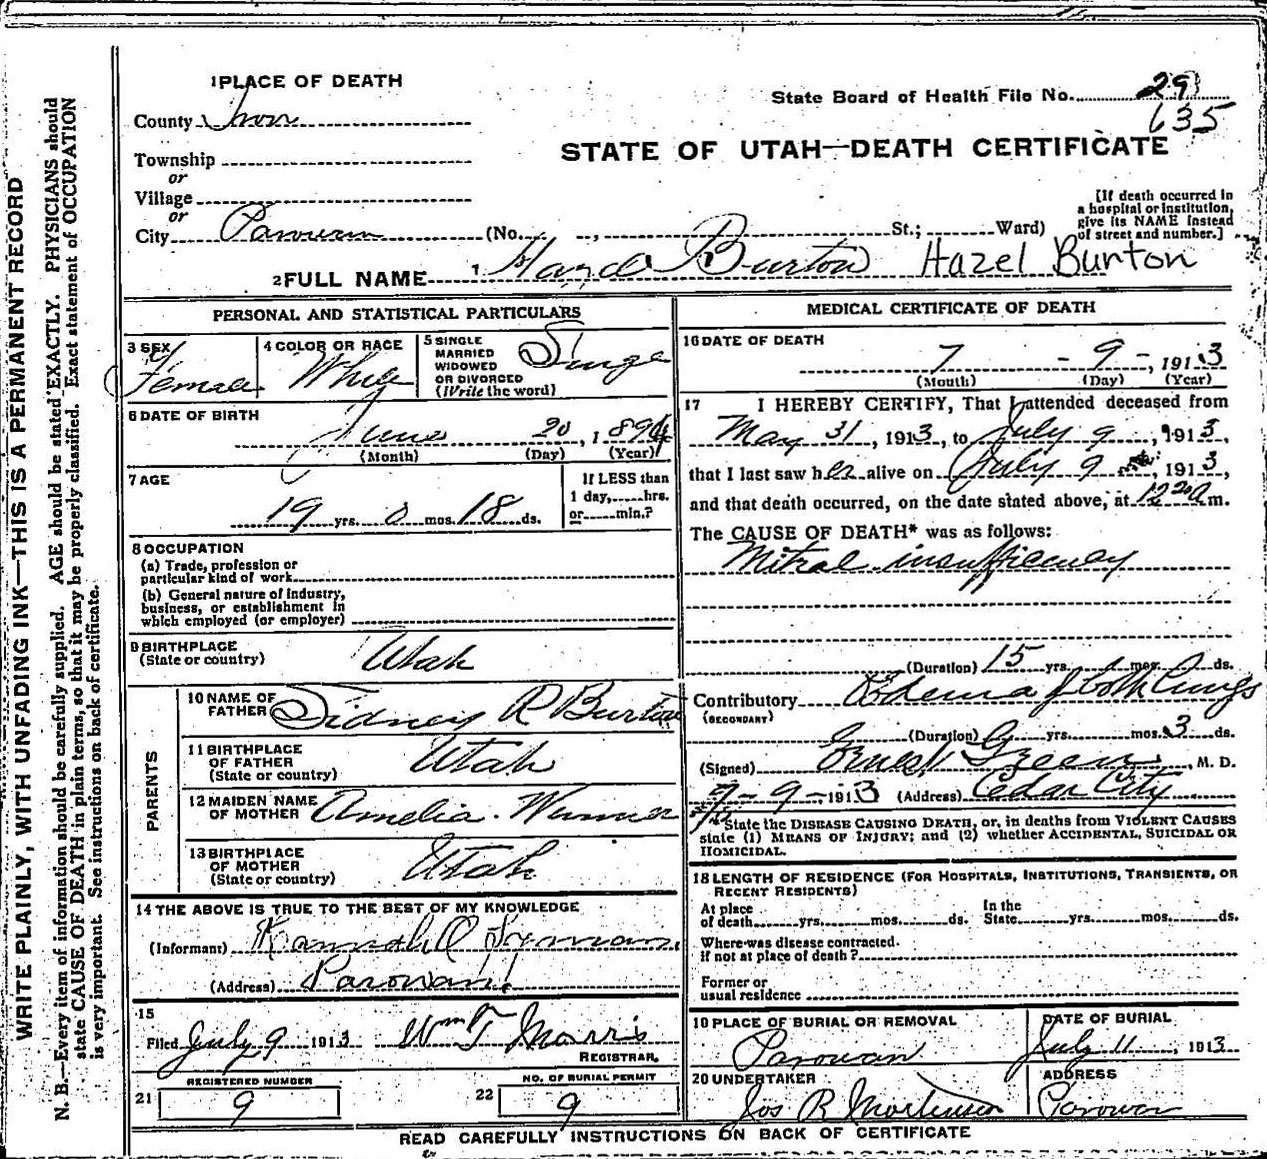 1 PLACE OF DEATH
State Board of Health File No. 29
635
County Iron
STATE OF UTAH—DEATH CERTIFICATE
Township
or
Village
or
City Parowan (No. , St.; Ward)
[If death occurred in
a hospital or institution,
give its NAME instead
of street and number.]
2 FULL NAME Hazel Burton Hazel Burton
PERSONAL AND STATISTICAL PARTICULARS
3 SEX
Female
4 COLOR OR RACE
White
5 SINGLE
MARRIED
WIDOWED
OR DIVORCED
(Write the word)
Single
6 DATE OF BIRTH
June 20, 1894
(Month) (Day) (Year)
7 AGE
19 yrs. 0 mos. 18 ds.
If LESS than
1 day, hrs.
or min.?
8 OCCUPATION
(a) Trade, profession or
particular kind of work
(b) General nature of industry,
business, or establishment in
which employed (or employer)
9 BIRTHPLACE
(State or country)
Utah
PARENTS
10 NAME OF
FATHER
Sidney R Burton
11 BIRTHPLACE
OF FATHER
(State or country)
Utah
12 MAIDEN NAME
OF MOTHER
Amelia
13 BIRTHPLACE
OF MOTHER
(State or country)
Utah
14 THE ABOVE IS TRUE TO THE BEST OF MY KNOWLEDGE
(Informant)
(Address) Parowan
15
Filed July 9 1913 Wm T Morris
REGISTRAR.
REGISTERED NUMBER
21 9
NO. OF BURIAL PERMIT
22 9
MEDICAL CERTIFICATE OF DEATH
16 DATE OF DEATH
7 - 9 -, 1913
(Month) (Day) (Year)
17 I HEREBY CERTIFY, That I attended deceased from
May 31, 1913, to July 9, 1913,
that I last saw her alive on July 9, 1913,
and that death occurred, on the date stated above, at 12 20 a m.
The CAUSE OF DEATH* was as follows:
Mitral insufficiency
(Duration) 15 yrs. mos. ds.
Contributory Edema of both lungs
(SECONDARY)
(Duration) yrs. mos. 3 ds.
(Signed) Ernest Green, M. D.
7-9-, 1913 (Address) Cedar City
*State the DISEASE CAUSING DEATH, or, in deaths from VIOLENT CAUSES
state (1) MEANS OF INJURY; and (2) whether ACCIDENTAL, SUICIDAL OR
HOMICIDAL.
18 LENGTH OF RESIDENCE (FOR HOSPITALS, INSTITUTIONS, TRANSIENTS, OR
RECENT RESIDENTS)
At place
of death yrs. mos. ds.
In the
State yrs. mos. ds.
Where was disease contracted.
if not at place of death?
Former or
usual residence
19 PLACE OF BURIAL OR REMOVAL
Parowan
DATE OF BURIAL
July 11, 1913
20 UNDERTAKER
Jos R Mortenson
ADDRESS
Parowan
READ CAREFULLY INSTRUCTIONS ON BACK OF CERTIFICATE
WRITE PLAINLY, WITH UNFADING INK—THIS IS A PERMANENT RECORD
N. B.—Every item of information should be carefully supplied. AGE should be stated EXACTLY. PHYSICIANS should
state CAUSE OF DEATH in plain terms, so that it may be properly classified. Exact statement of OCCUPATION
is very important. See instructions on back of certificate.